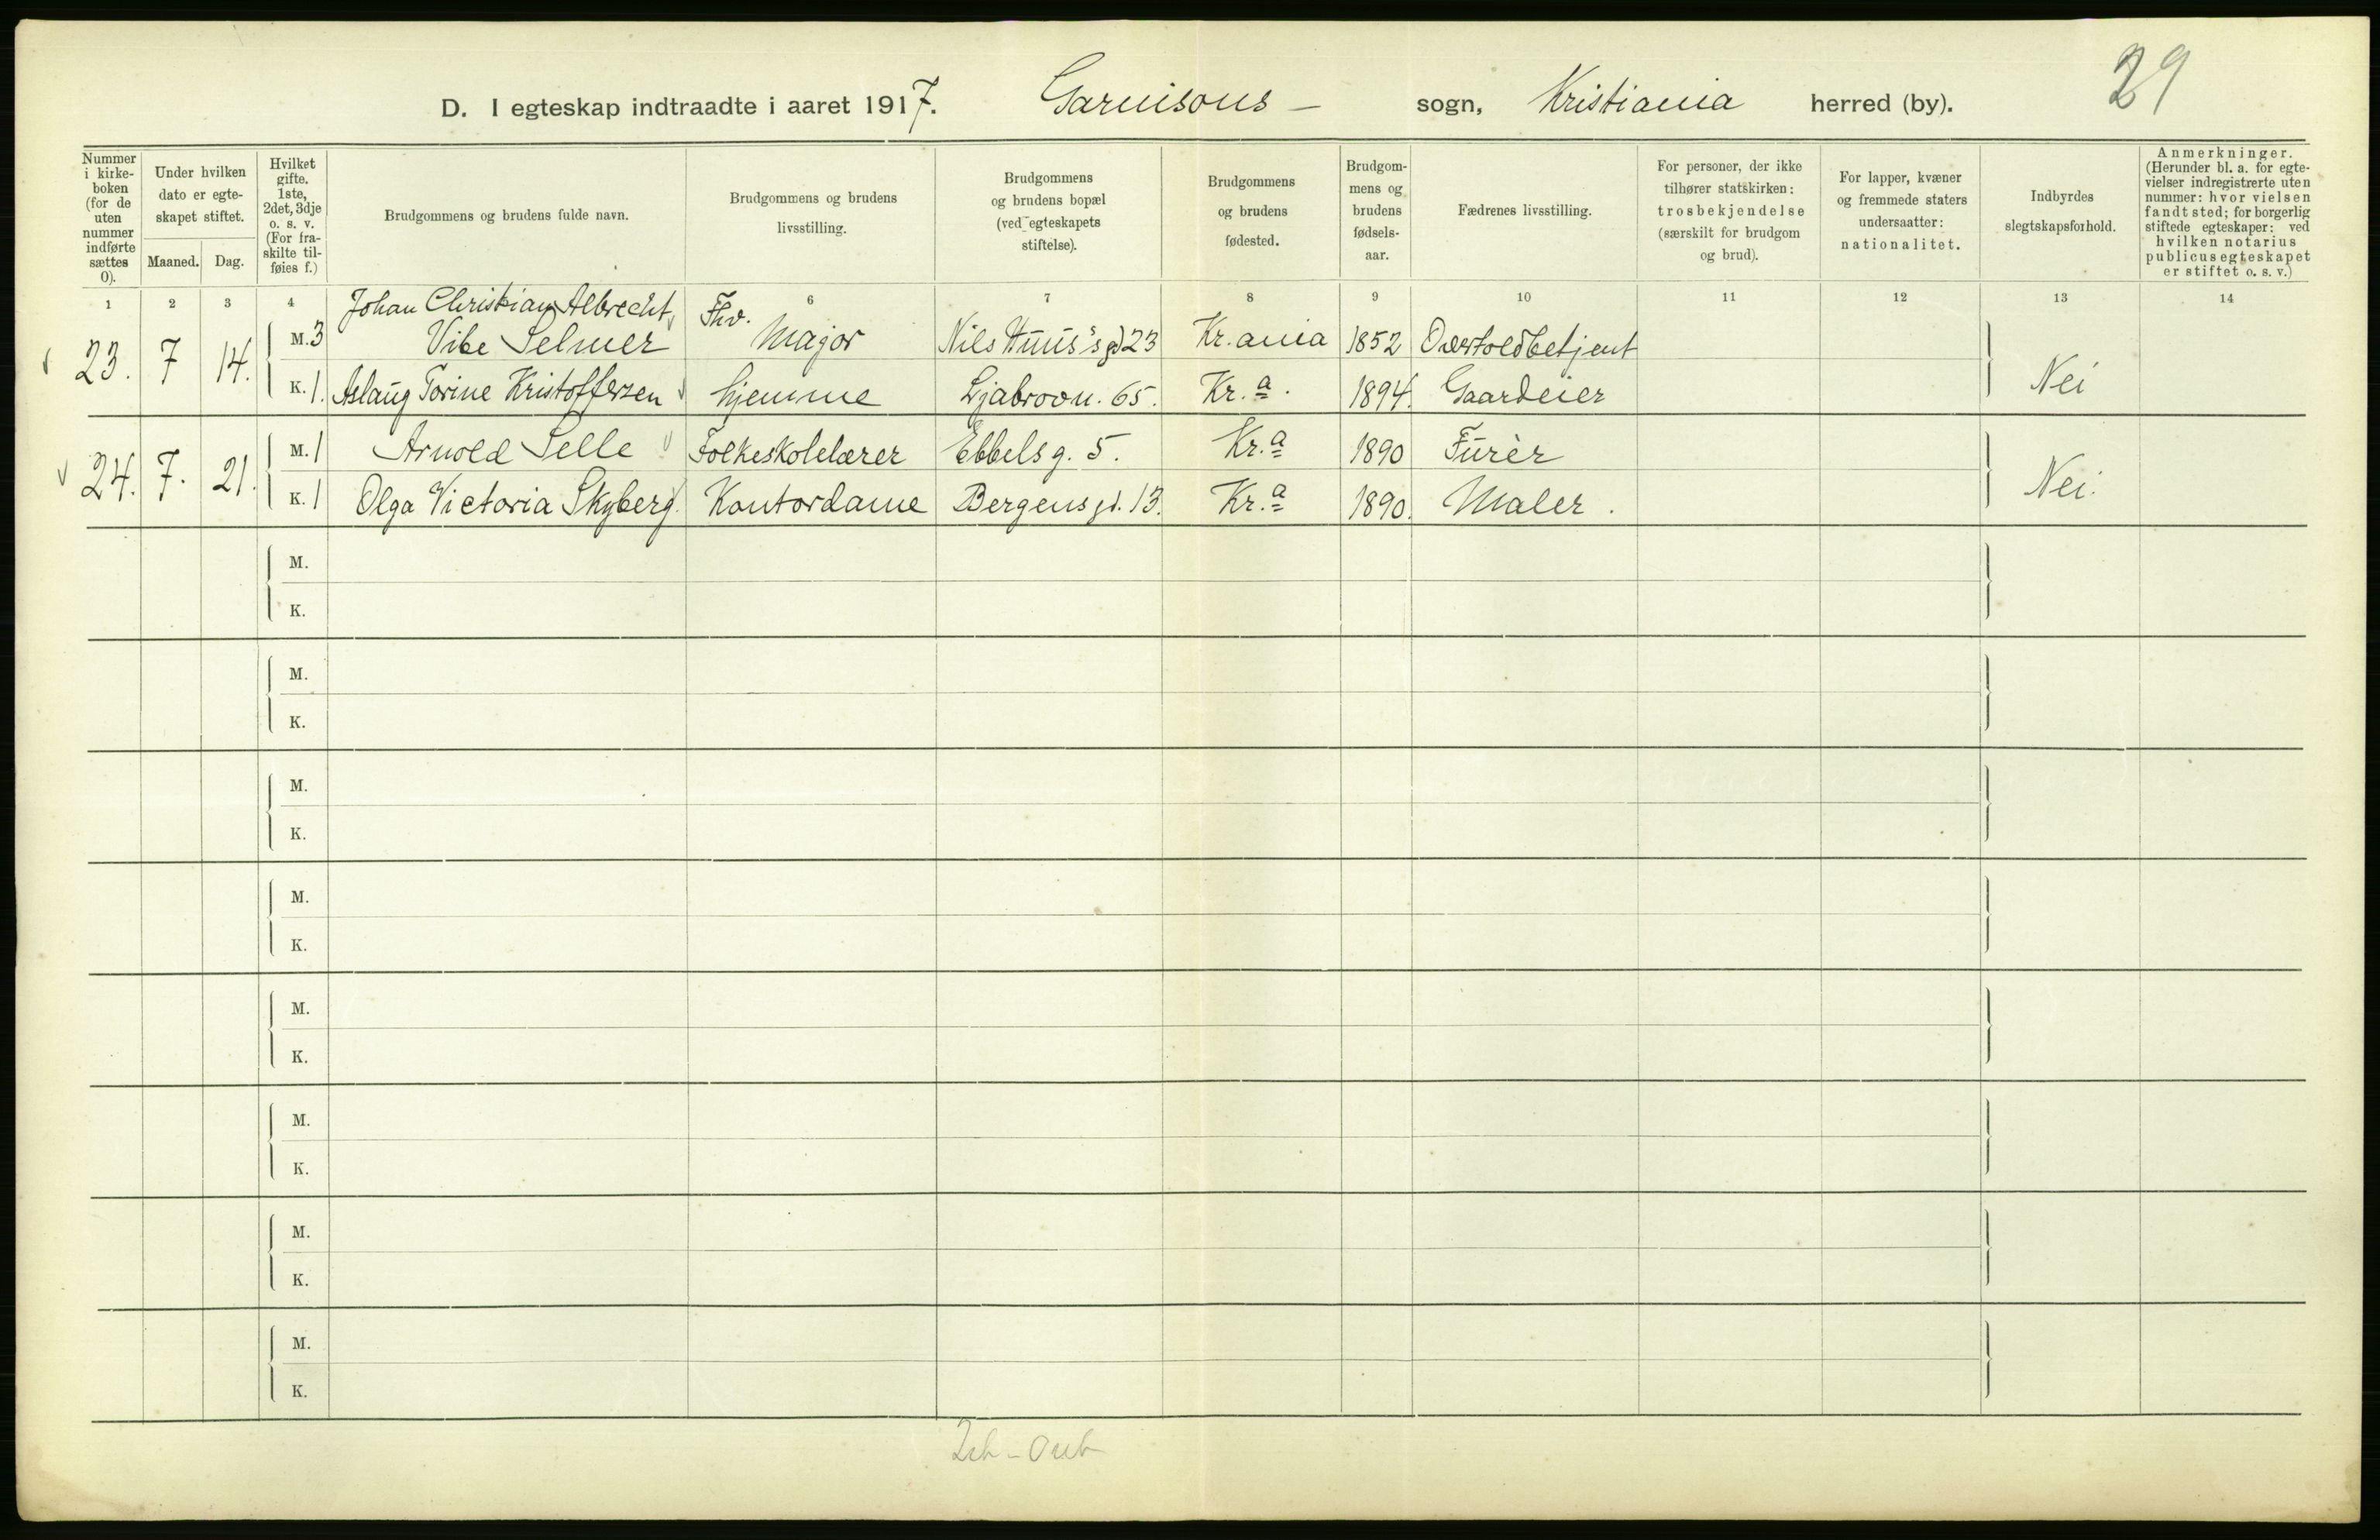 29
D. I egteskap indtraadte i aaret 1917. Garnisons – sogn, Kristiania herred (by).
Nummer i kirke-boken (for de uten nummer indførte sættes 0).
Under hvilken dato er egte-skapet stiftet.
Maaned. Dag.
Hvilket gifte. 1ste, 2det, 3dje o. s. v. (For fra-skilte til-føies f.)
Brudgommens og brudens fulde navn.
Brudgommens og brudens livsstilling.
Brudgommens og brudens bopæl (ved egteskapets stiftelse).
Brudgommens og brudens fødested.
Brudgom-mens og brudens fødsels-aar.
Fædrenes livsstilling.
For personer, der ikke tilhører statskirken: trosbekjendelse (særskilt for brudgom og brud).
For lapper, kvæner og fremmede staters undersaatter: nationalitet.
Indbyrdes slegtskapsforhold.
Anmerkninger. (Herunder bl. a. for egte-vielser indregistrerte uten nummer: hvor vielsen fandt sted; for borgerlig stiftede egteskaper: ved hvilken notarius publicus egteskapet er stiftet o. s. v.)
1 2 3 4 6 7 8 9 10 11 12 13 14
23. 7 14. M. 3 Johan Christian Albrecht Vibe Selmer Fhv. Major Nils Huus's gd 23 Kr.ania 1852 Overtoldbetjent
K. 1. Aslaug Torine Kristoffersen hjemme Ljabrovn. 65. Kr.a. 1894. Gaardeier Nei
24. 7. 21. M. 1 Arnold Selle Folkeskolelærer Ebbelsg. 5. Kr.a 1890 Furèr
K. 1 Olga Victoria Skyberg Kontordame Bergensgd. 13. Kr.a 1890. Maler. Nei.
M.
K.
M.
K.
M.
K.
M.
K.
M.
K.
M.
K.
M.
K.
M.
K.